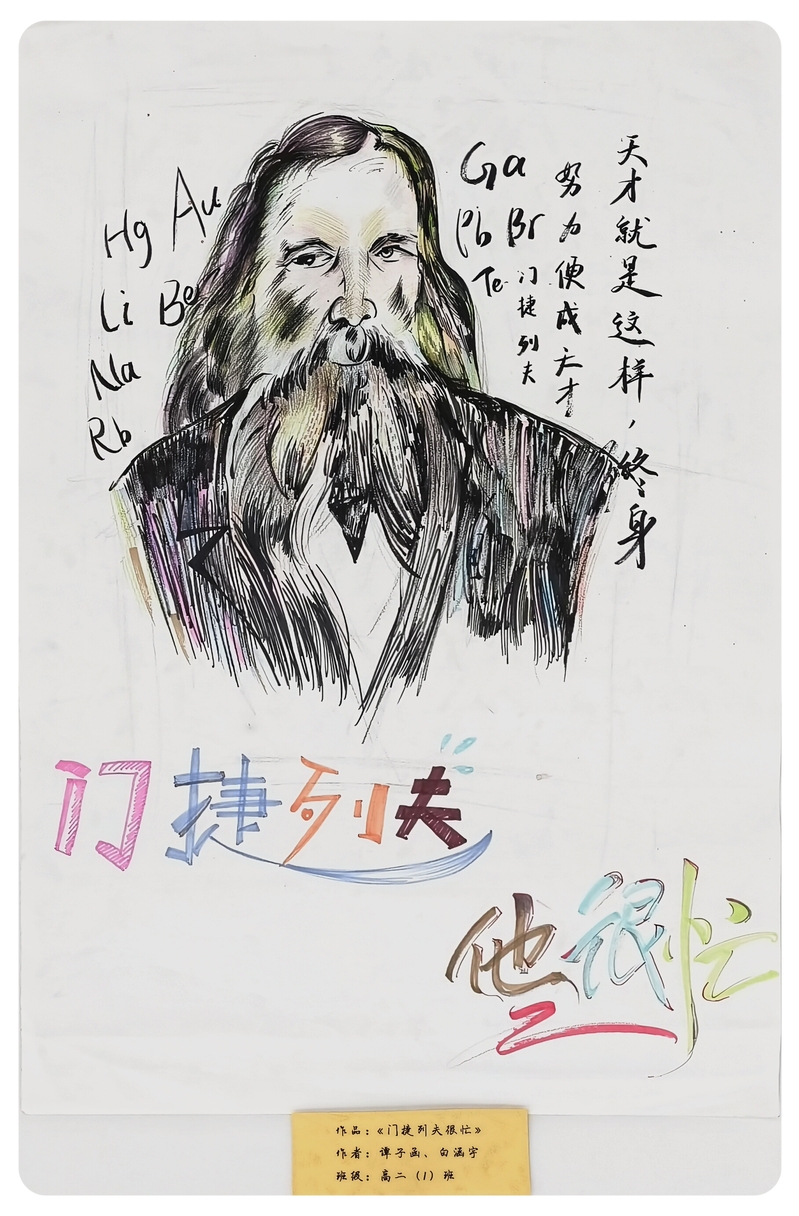 Hg Au
Li Be
Na
Rb
Ga
Pb Br
Te
天才就是这样，终身
努力便成天才
门捷列夫
门捷列夫
他很忙
作品：《门捷列夫很忙》
作者：谭子函、白涵宇
班级：高二（1）班